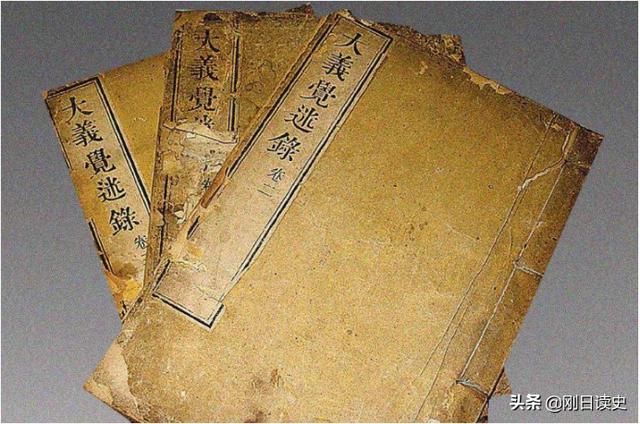 大義覺迷錄 卷
大義覺迷 
大義覺迷錄 卷二
头条 @刚日读史